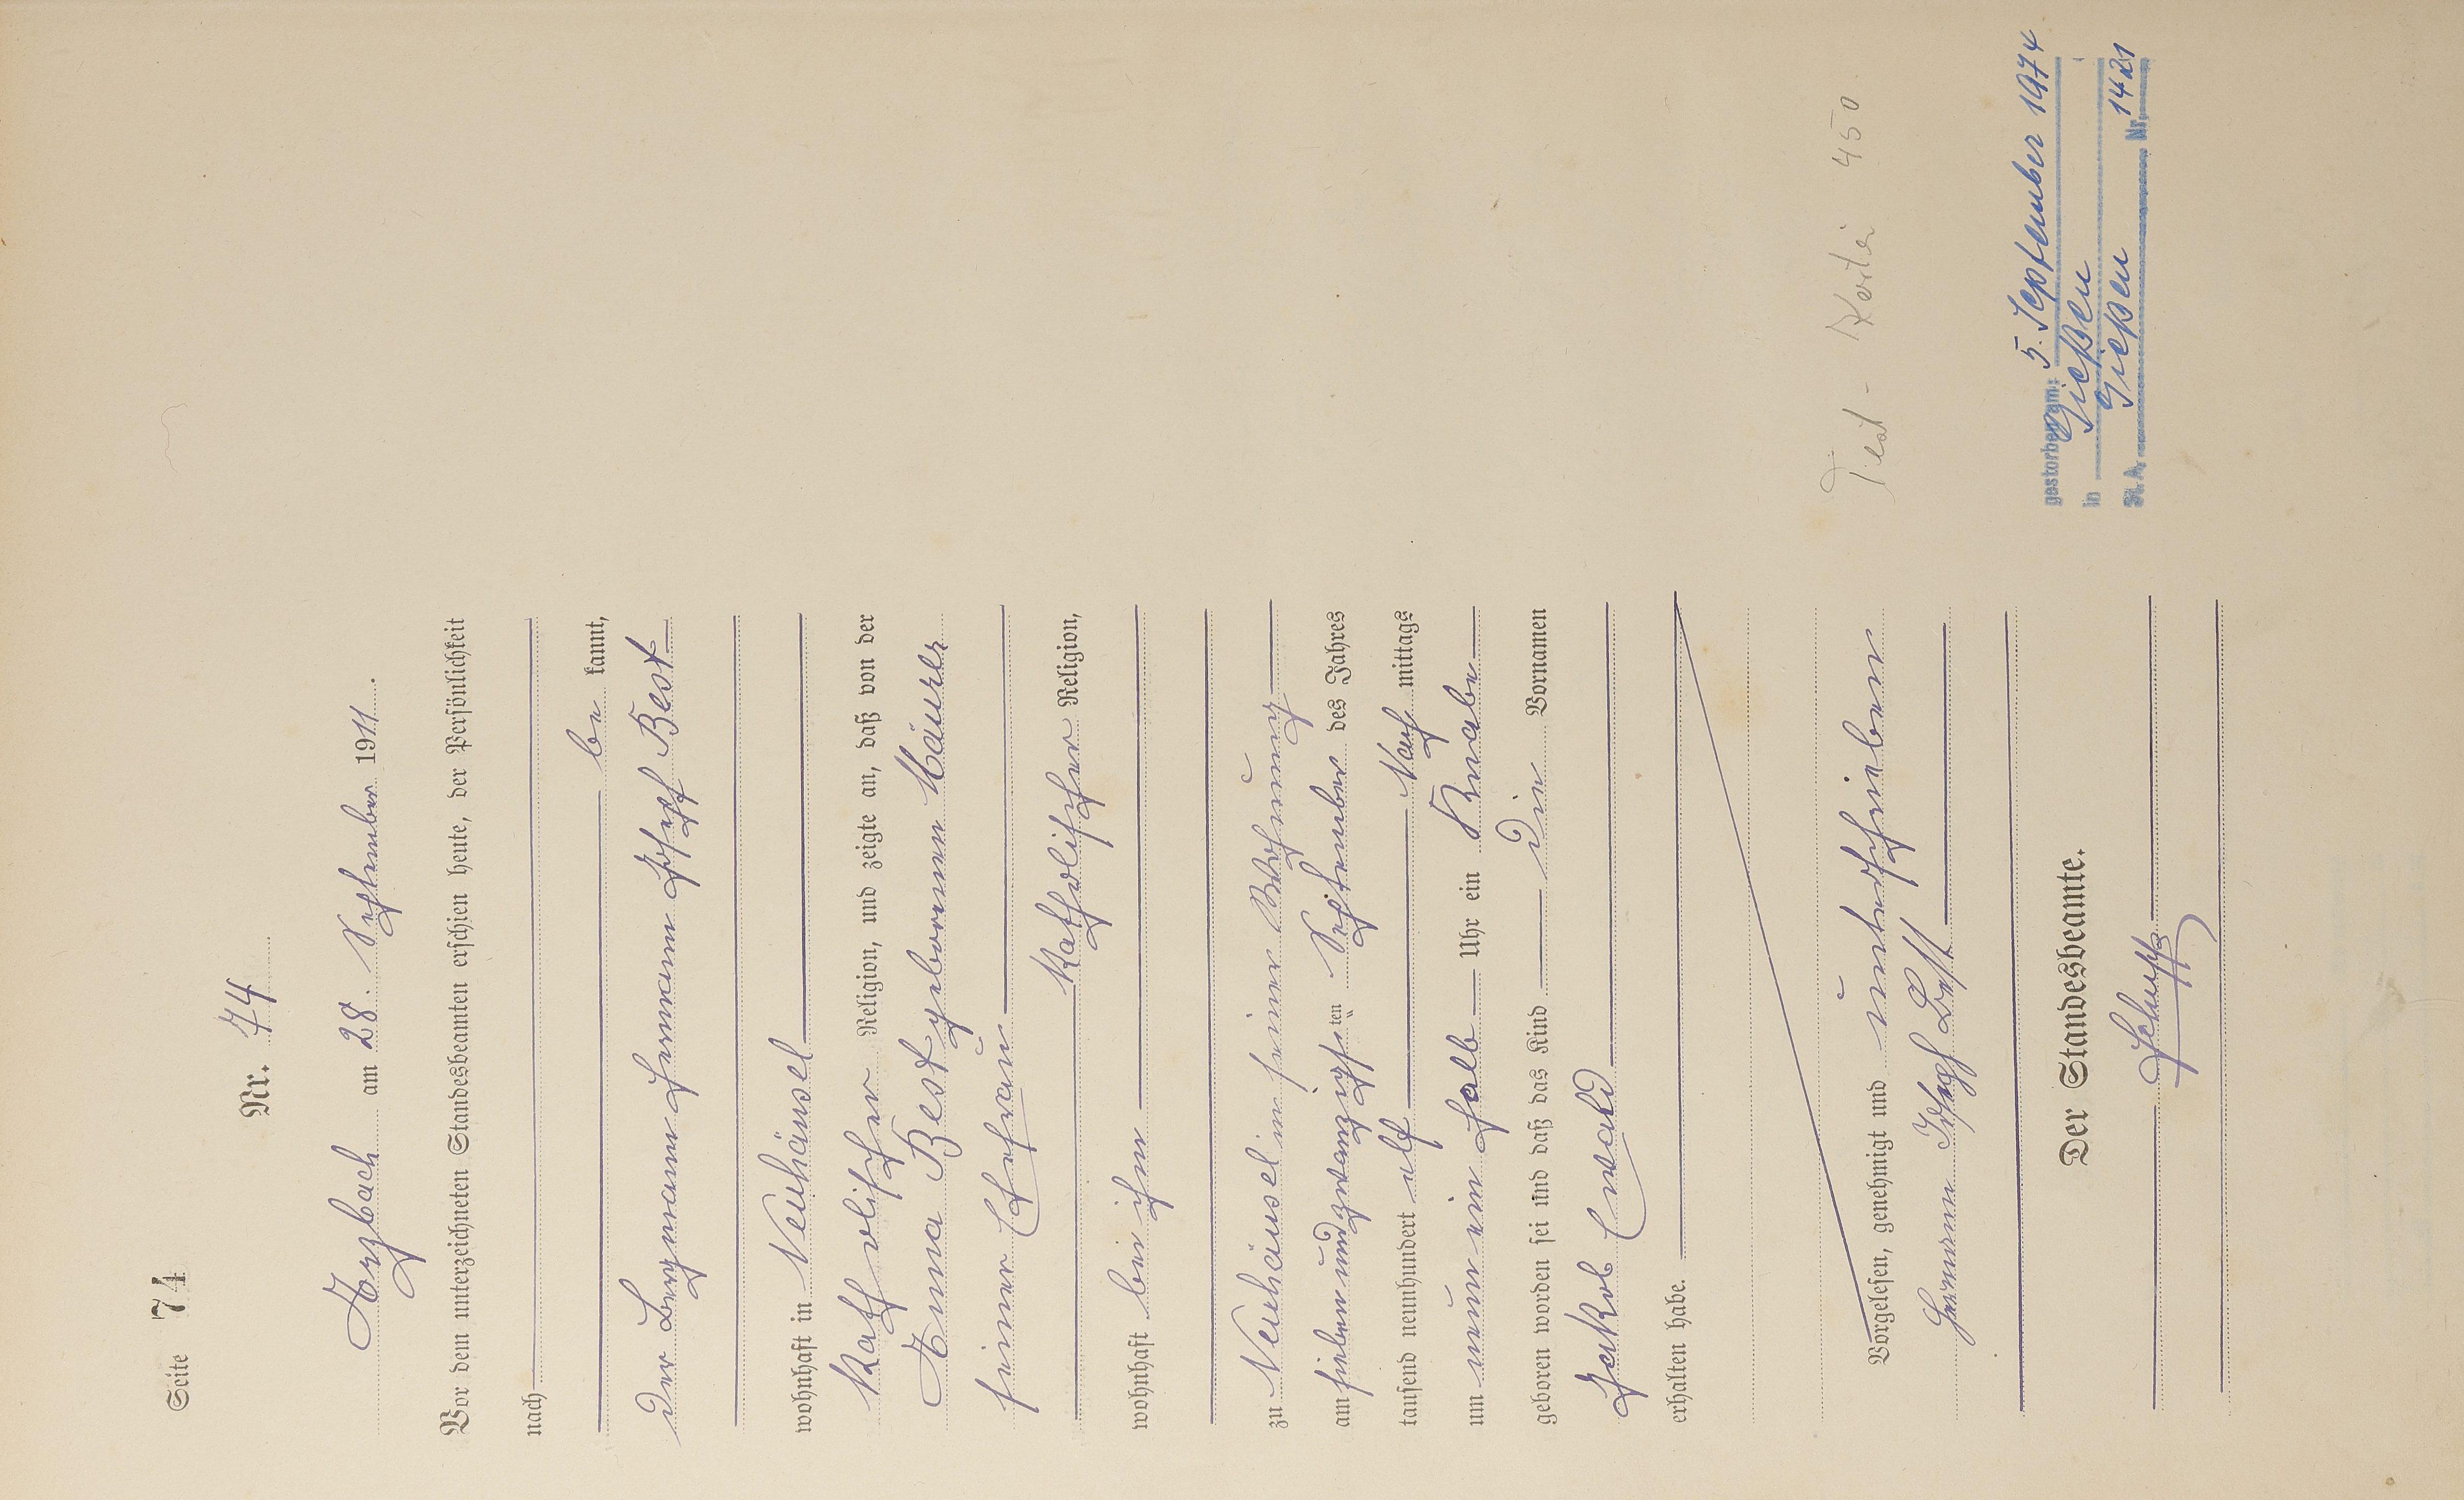 Seite 74
Nr. 74
Arzbach am 28. September 1911.
Vor dem unterzeichneten Standesbeamten erschien heute, der Persönlichkeit
nach
be kannt,
der Bergmann Hermann Josef Best
wohnhaft in Neuhäusel
katholischer Religion, und zeigte an, daß von der
Anna Best geborenen Mäurer
seiner Ehefrau
katholischer Religion,
wohnhaft bei ihm
zu Neuhäusel in seiner Wohnung
am siebenundzwanzigsten September des Jahres
tausend neunhundert elf Nach mittags
um neun ein halb Uhr ein Knabe
geboren worden sei und daß das Kind die Vornamen
Jakob Ewald
erhalten habe.
Vorgelesen, genehmigt und unterschrieben
Hermann Joseph Best
Der Standesbeamte.
Test - Kartei 450
gestorben am: 5. September 1974
in Gießen
St. A. Gießen Nr. 1421